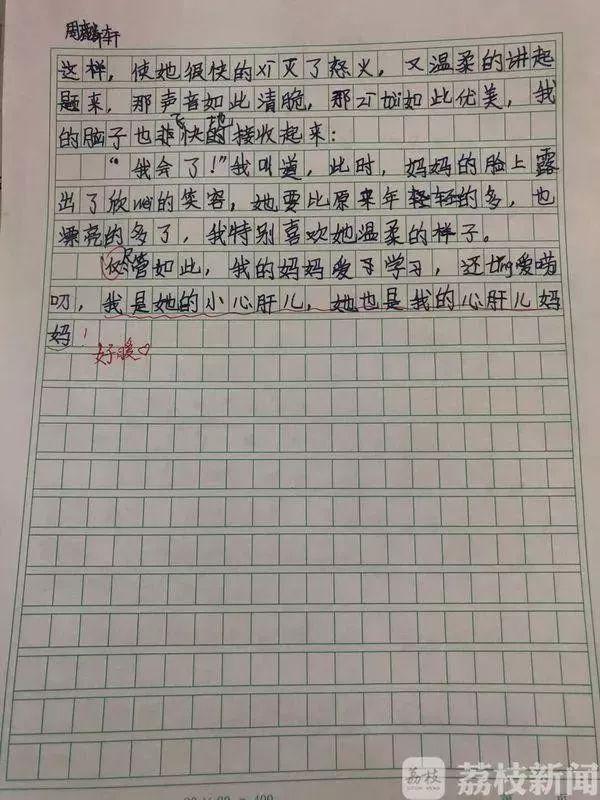 周麟轩
这样，使她很快的xī灭了怒火，又温柔的讲起
题来，那声音如此清脆，那zī tài如此优美，我
的脑子也飞快地接收起来：
“我会了！”我叫道，此时，妈妈的脸上露
出了欣wèi的笑容，她要比原来年轻的多，也
漂亮的多了，我特别喜欢她温柔的样子。
尽管如此，我的妈妈爱学习，还tǐng爱唠
叨，我是她的小心肝儿，她也是我的心肝儿妈
妈！
好暖♡
20×20=400
荔枝
荔枝新闻